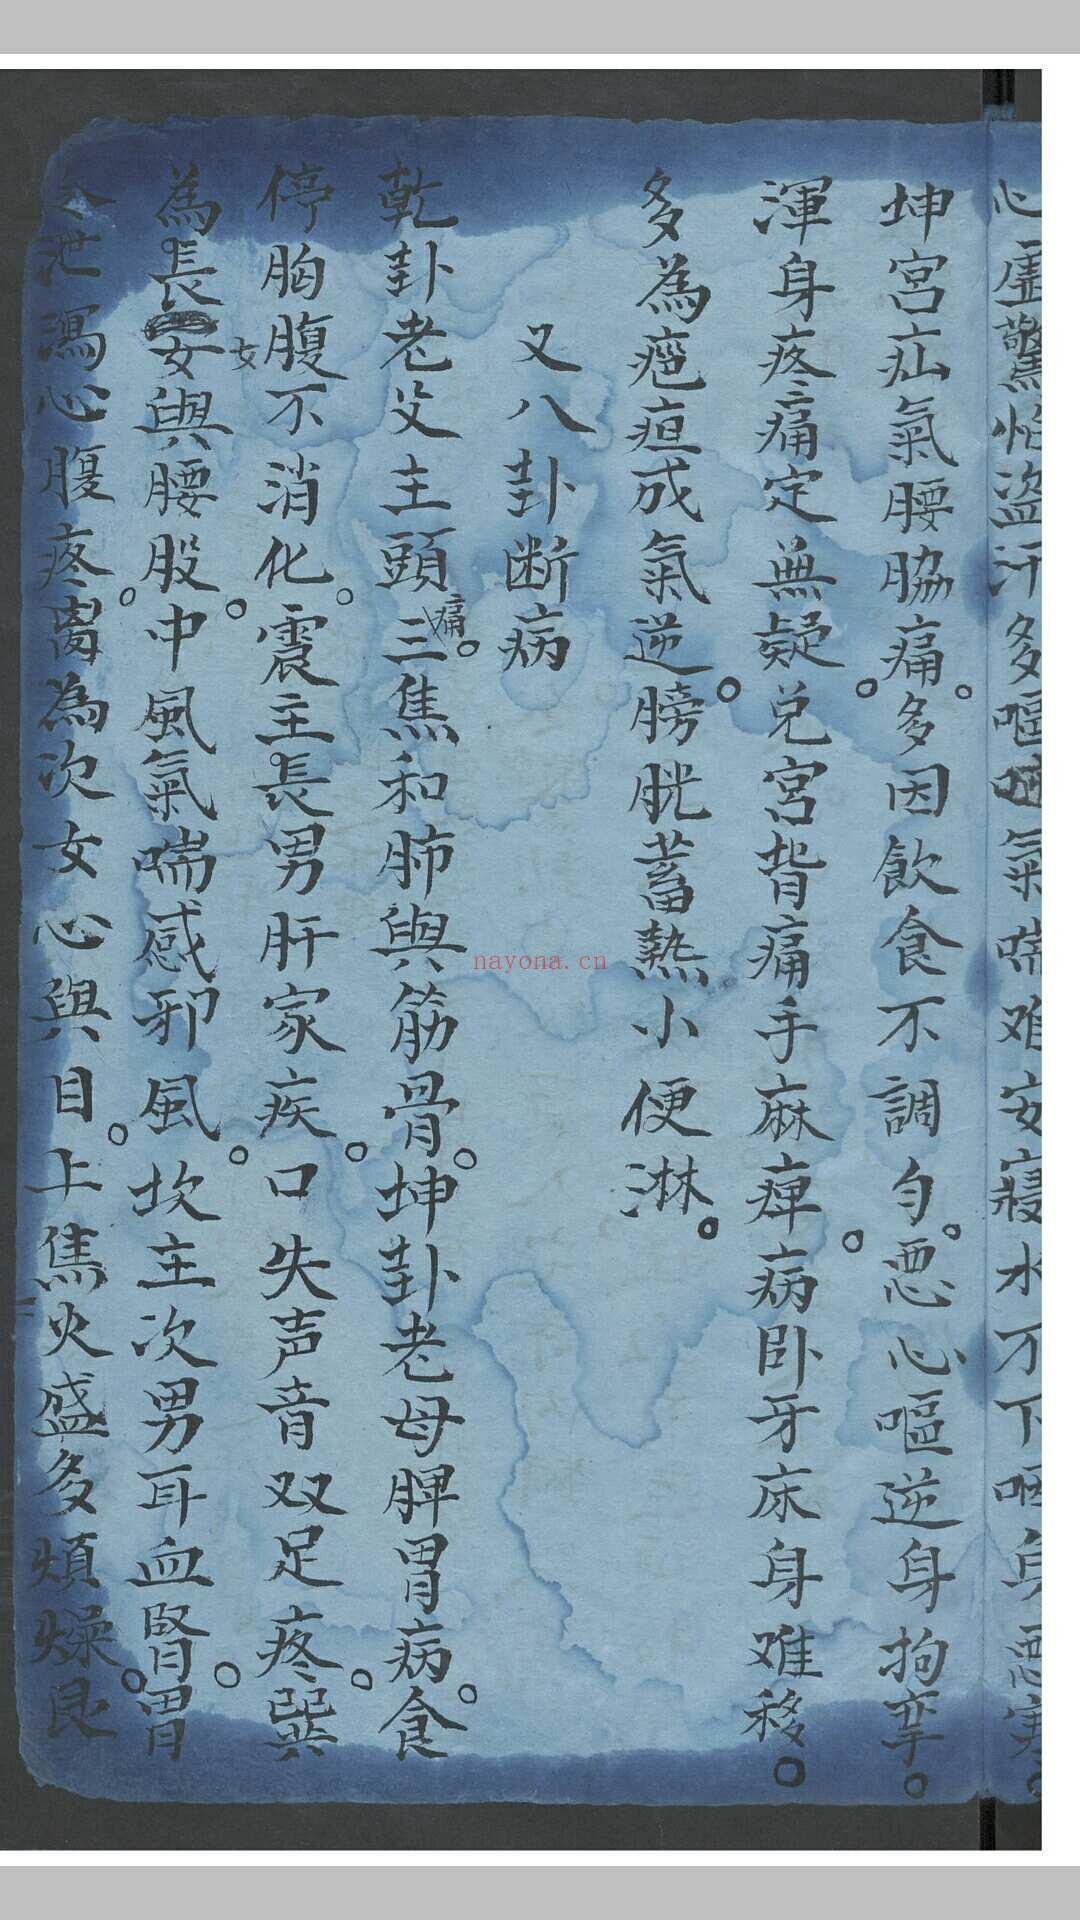 心虛驚怕盜汗多嘔氣喘难安寢水不下咽臭惡实
坤宮疝氣腰脇痛。多因飲食不調勻。恶心嘔逆身拘挛。
渾身疼痛定無疑。兑宮背痛手麻痺。病卧牙床身难移。
多為疤疸成氣逆。膀胱蓄熱小便淋。
又八卦断病
乾卦老父主頭痛。三焦和肺與筋骨。坤卦老母脾胃病。食
停胸腹不消化。震主長男肝家疾。口失声音双足疼。巽
為長女與腰股。中風氣喘感邪風。坎主次男耳血腎。胃
泄瀉心腹疼。离為次女心與目。上焦火盛多煩燥。艮
nayona.cn